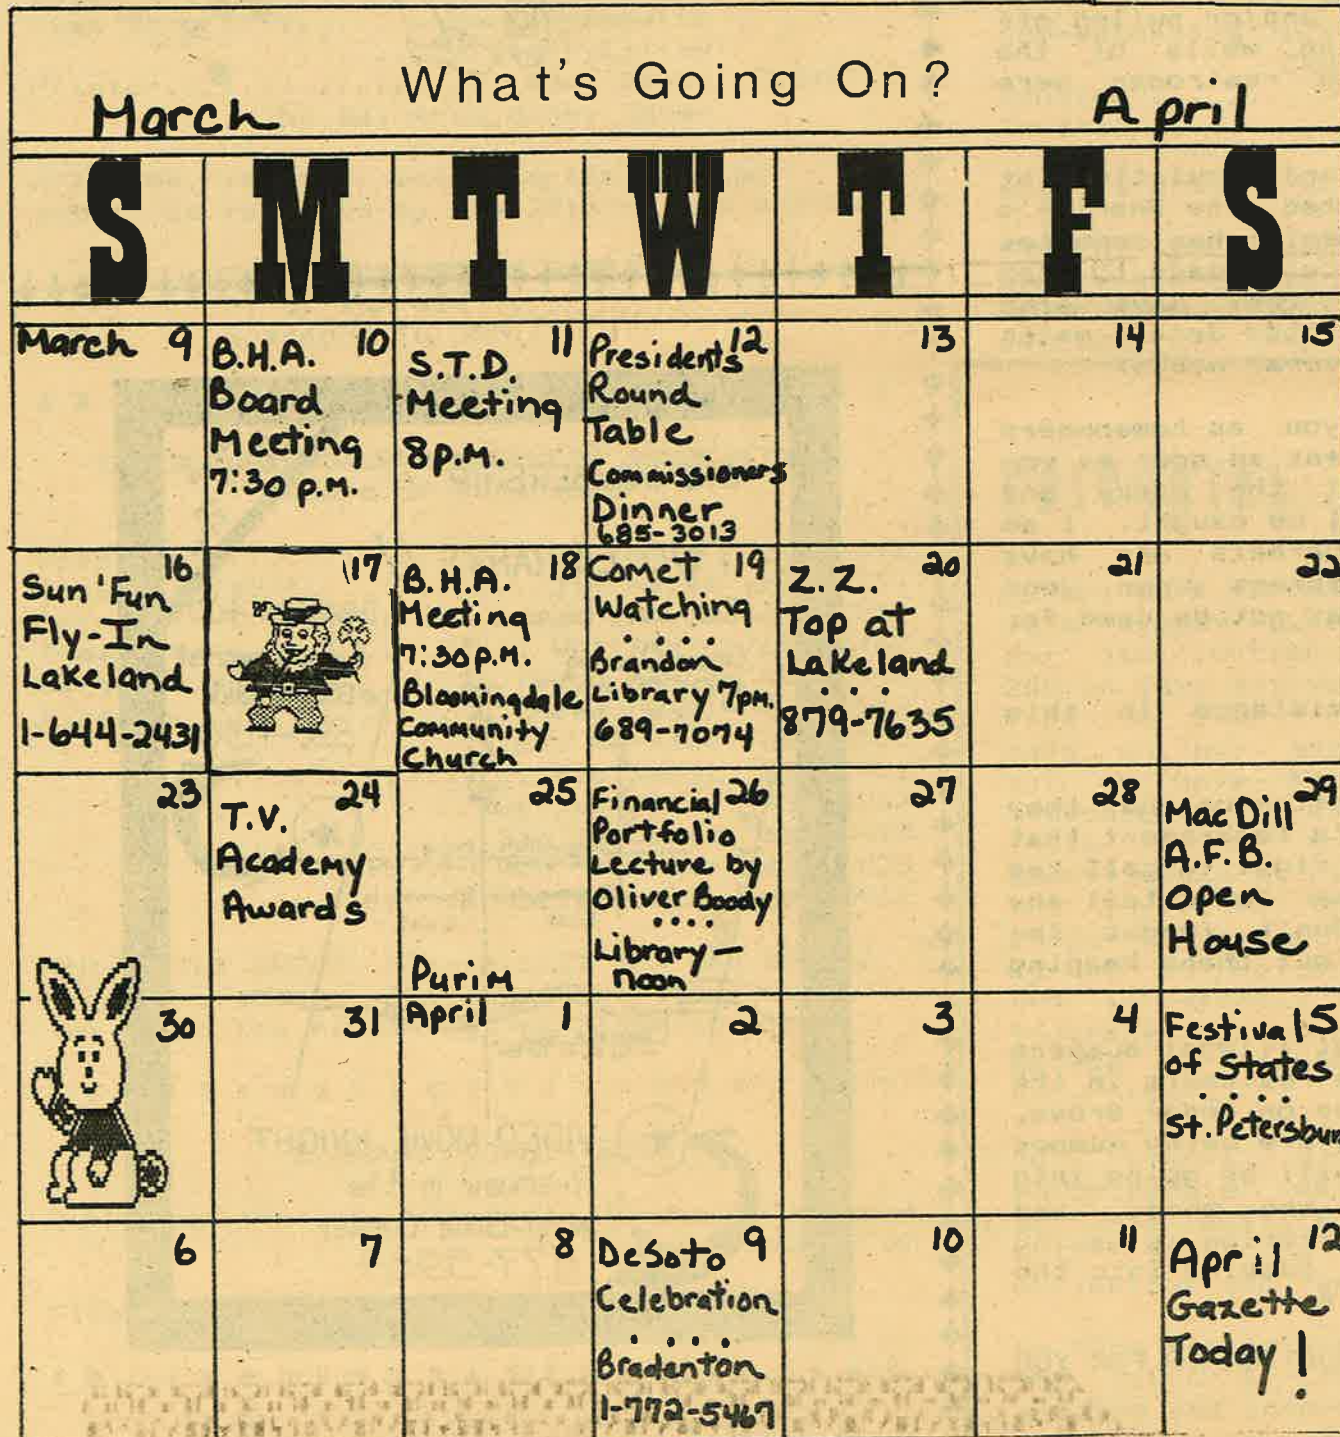 What's Going On?
March April
S M T W T F S
March 9
B.H.A. 10
Board
Meeting
7:30 p.m.
S.T.D. 11
Meeting
8 p.m.
Presidents 12
Round
Table
Commissioners
Dinner
685-3013
13
14
15
16
Sun 'Fun
Fly-In
Lakeland
1-644-2431
17
B.H.A. 18
Meeting
7:30 P.M.
Bloomingdale
Community
Church
Comet 19
Watching
....
Brandon
Library 7pm.
689-7074
Z.Z. 20
Top at
Lakeland
...
879-7635
21
22
23
24
T.V.
Academy
Awards
25
Purim
Financial 26
Portfolio
Lecture by
Oliver Boody
....
Library —
noon
27
28
29
MacDill
A.F.B.
Open
House
30
31
April 1
2
3
4
Festival 5
of States
....
St. Petersbur
6
7
8
DeSoto 9
Celebration
....
Bradenton
1-772-5467
10
11
April 12
Gazette
Today!